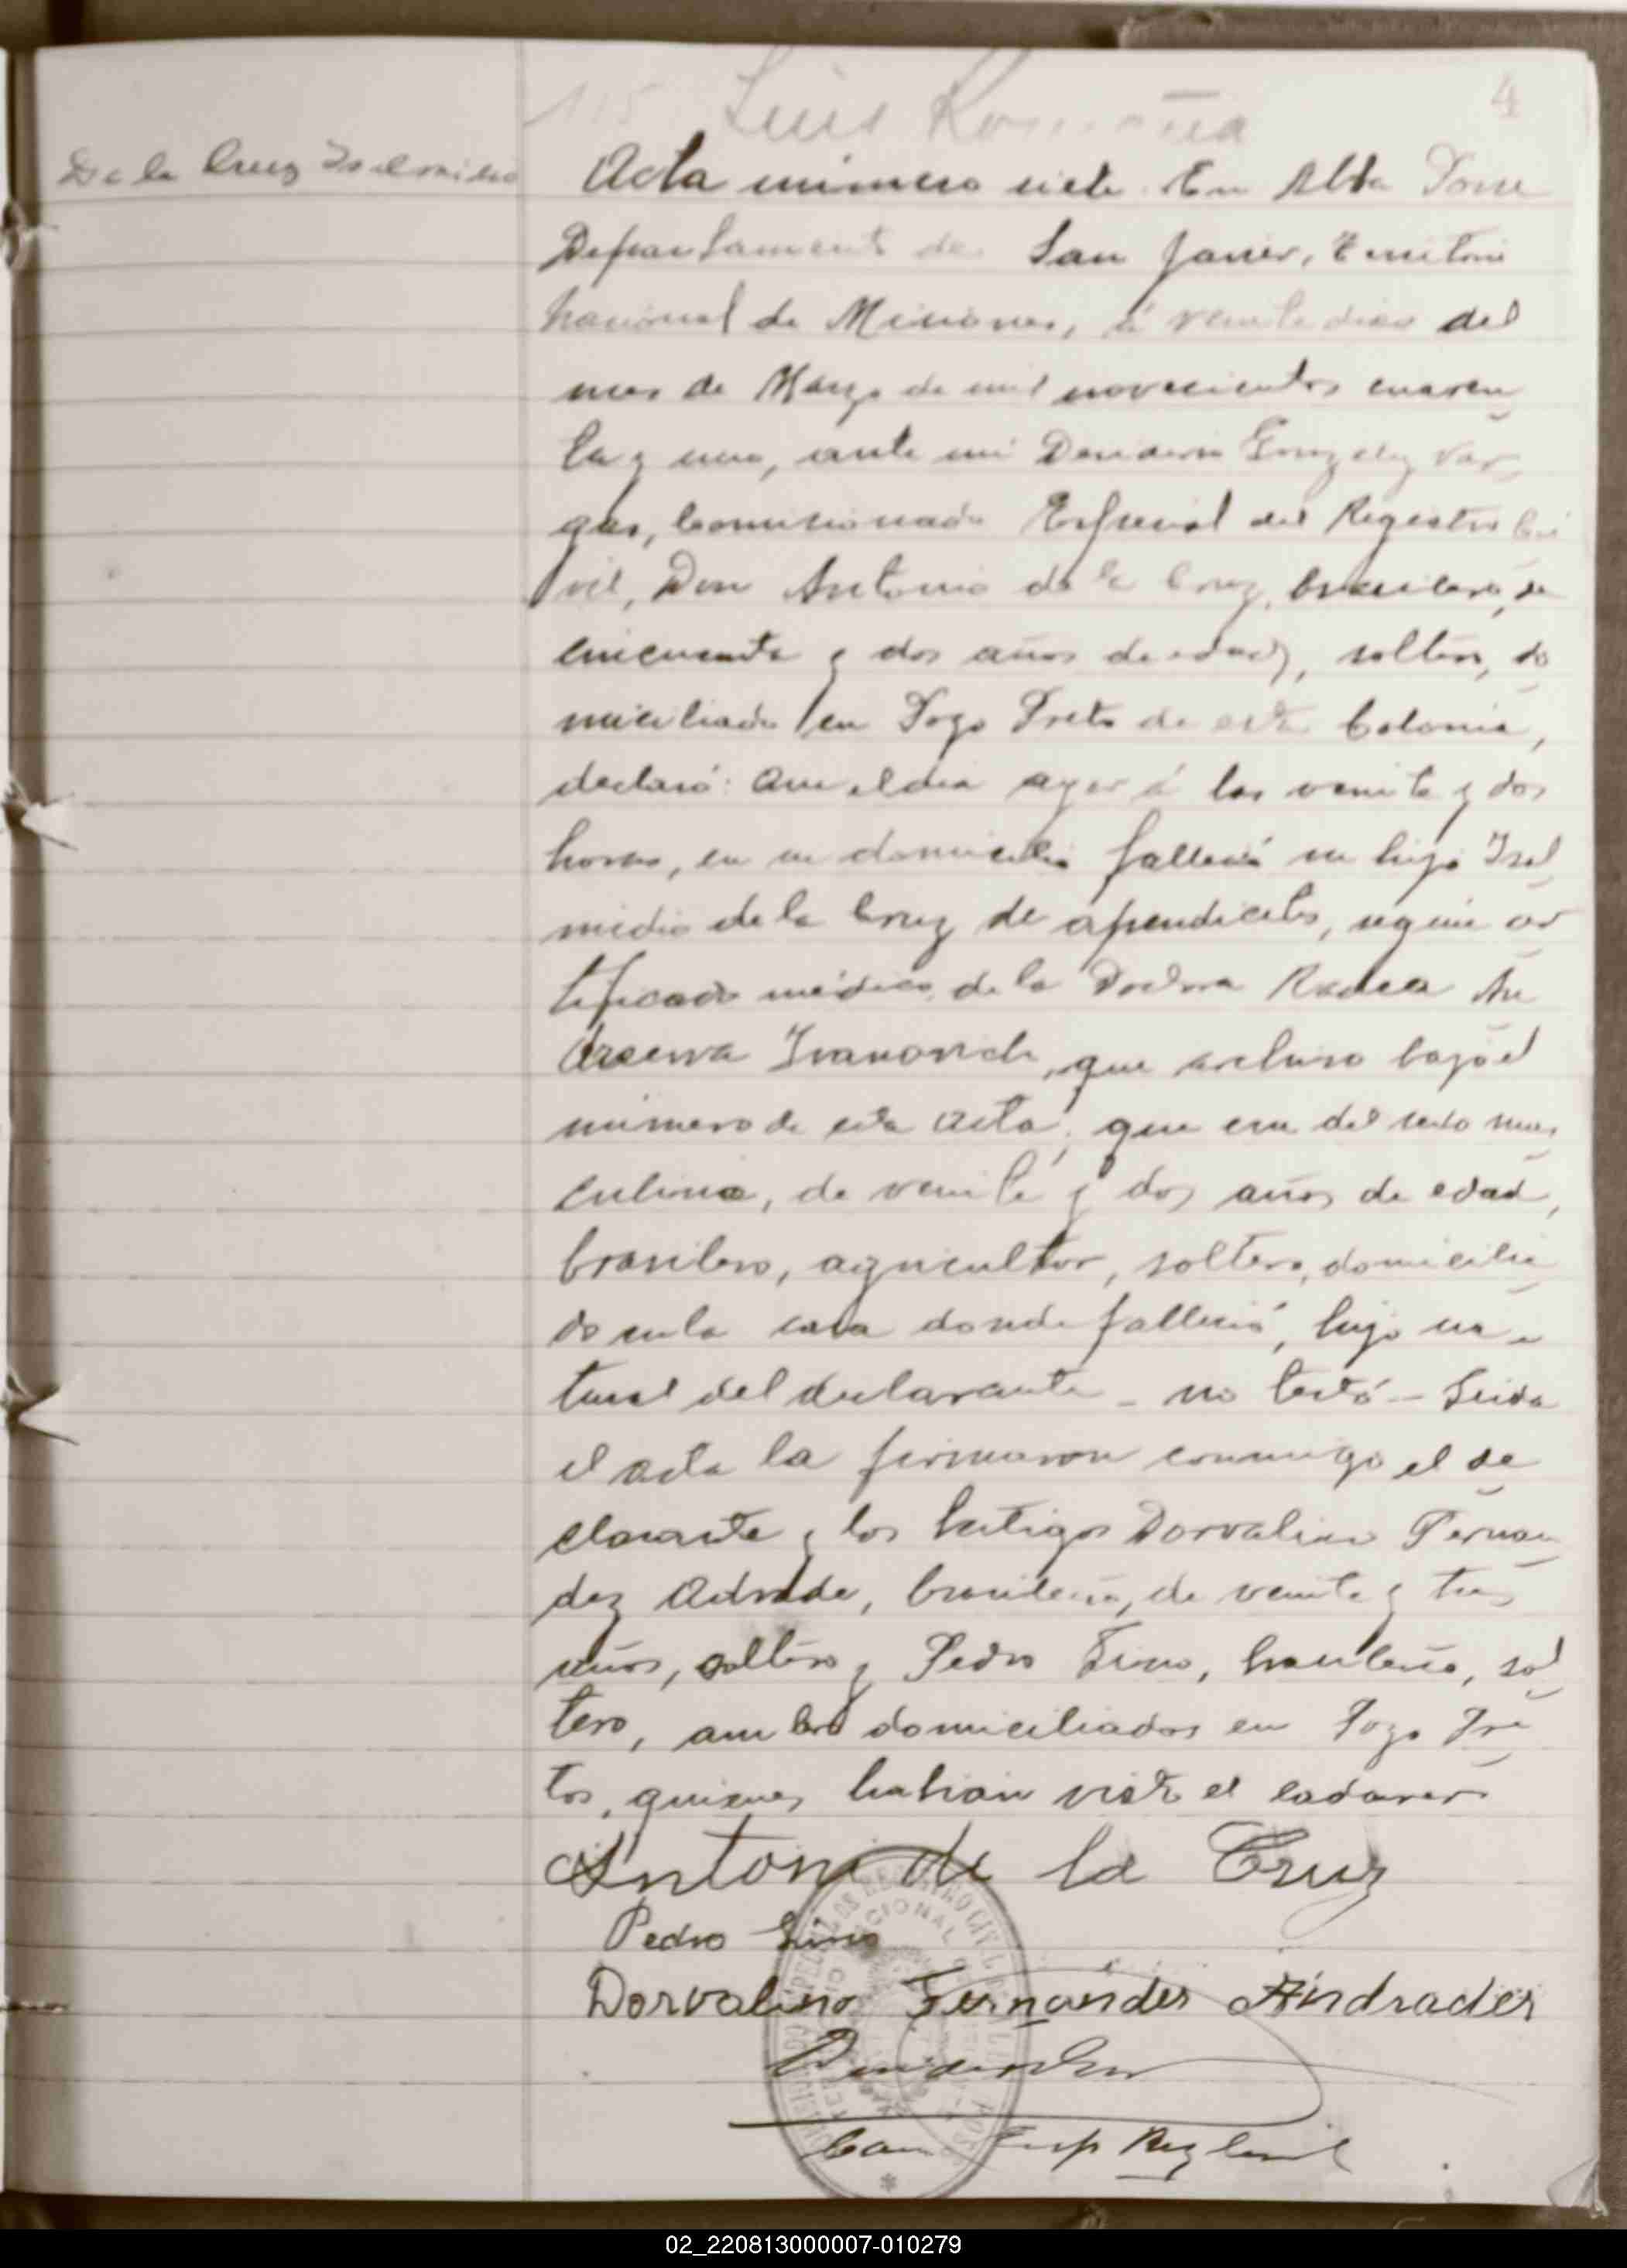 4
115 Luis
De la Cruz Iselmidio
Acta número siete. En Alba Posse
Departamento de San Javier, Territorio
Nacional de Misiones, á veinte dias del
mes de Marzo de mil novecientos cuaren
ta y uno, ante mi Desiderio Gonzalez Var
gas, Comisionado Especial del Registro Ci
vil, Don Antonio de la Cruz, brasilero, de
cincuenta y dos años de edad, soltero, do
miciliado en Pozo Preto de esta Colonia,
declaró: Que el dia ayer á las veinte y dos
horas, en su domicilio falleció su hijo Isel
midio de la Cruz de apendicitis, según cer
tificado médico de la Doctora Radca
Ivanovich, que archivo bajo el
número de esta acta; que era del sexo mas
culino, de veinte y dos años de edad,
brasilero, agricultor, soltero, domicilia
do en la casa donde falleció, hijo na
tural del declarante – no testó – Leida
el acta la firmaron conmigo el de
clarante y los testigos Dorvalino Fernan
dez Adrade, brasileño, de veinte y tres
años, soltero y Pedro Lino, brasileño, sol
tero, ambos domiciliados en Pozo Pre
tos, quienes habian visto el cadaver
Antoni de la Cruz
Pedro Lino
Dorvalino Fernandes Andrades
Com Esp Reg Civil
REGISTRO CIVIL
02_220813000007-010279